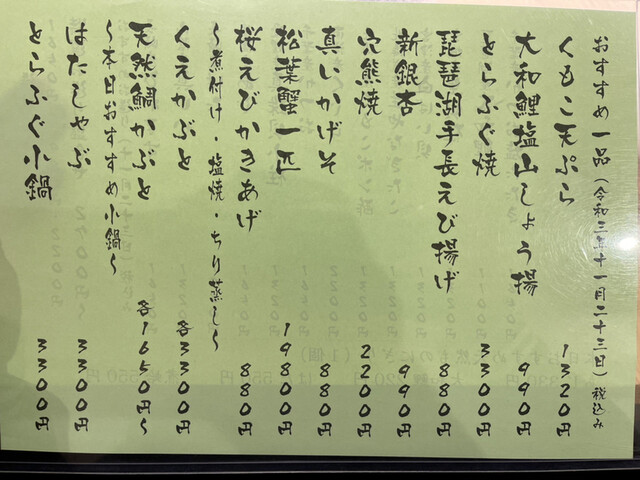 おすすめ一品(令和三年十一月二十三日)税込み
くもこ天ぷら 1320円
大和鯉塩山しょう揚 990円
とらふぐ焼 3300円
琵琶湖手長えび揚げ 880円
新銀杏 990円
穴熊焼 2200円
真いかげそ 880円
松葉蟹一匹 19800円
桜えびかきあげ 880円
～煮付け・塩焼・ちり蒸し～
くえかぶと 各3300円
天然鯛かぶと 各1650円～
～本日おすすめ小鍋～
はたしゃぶ 3300円
とらふぐ小鍋 3300円